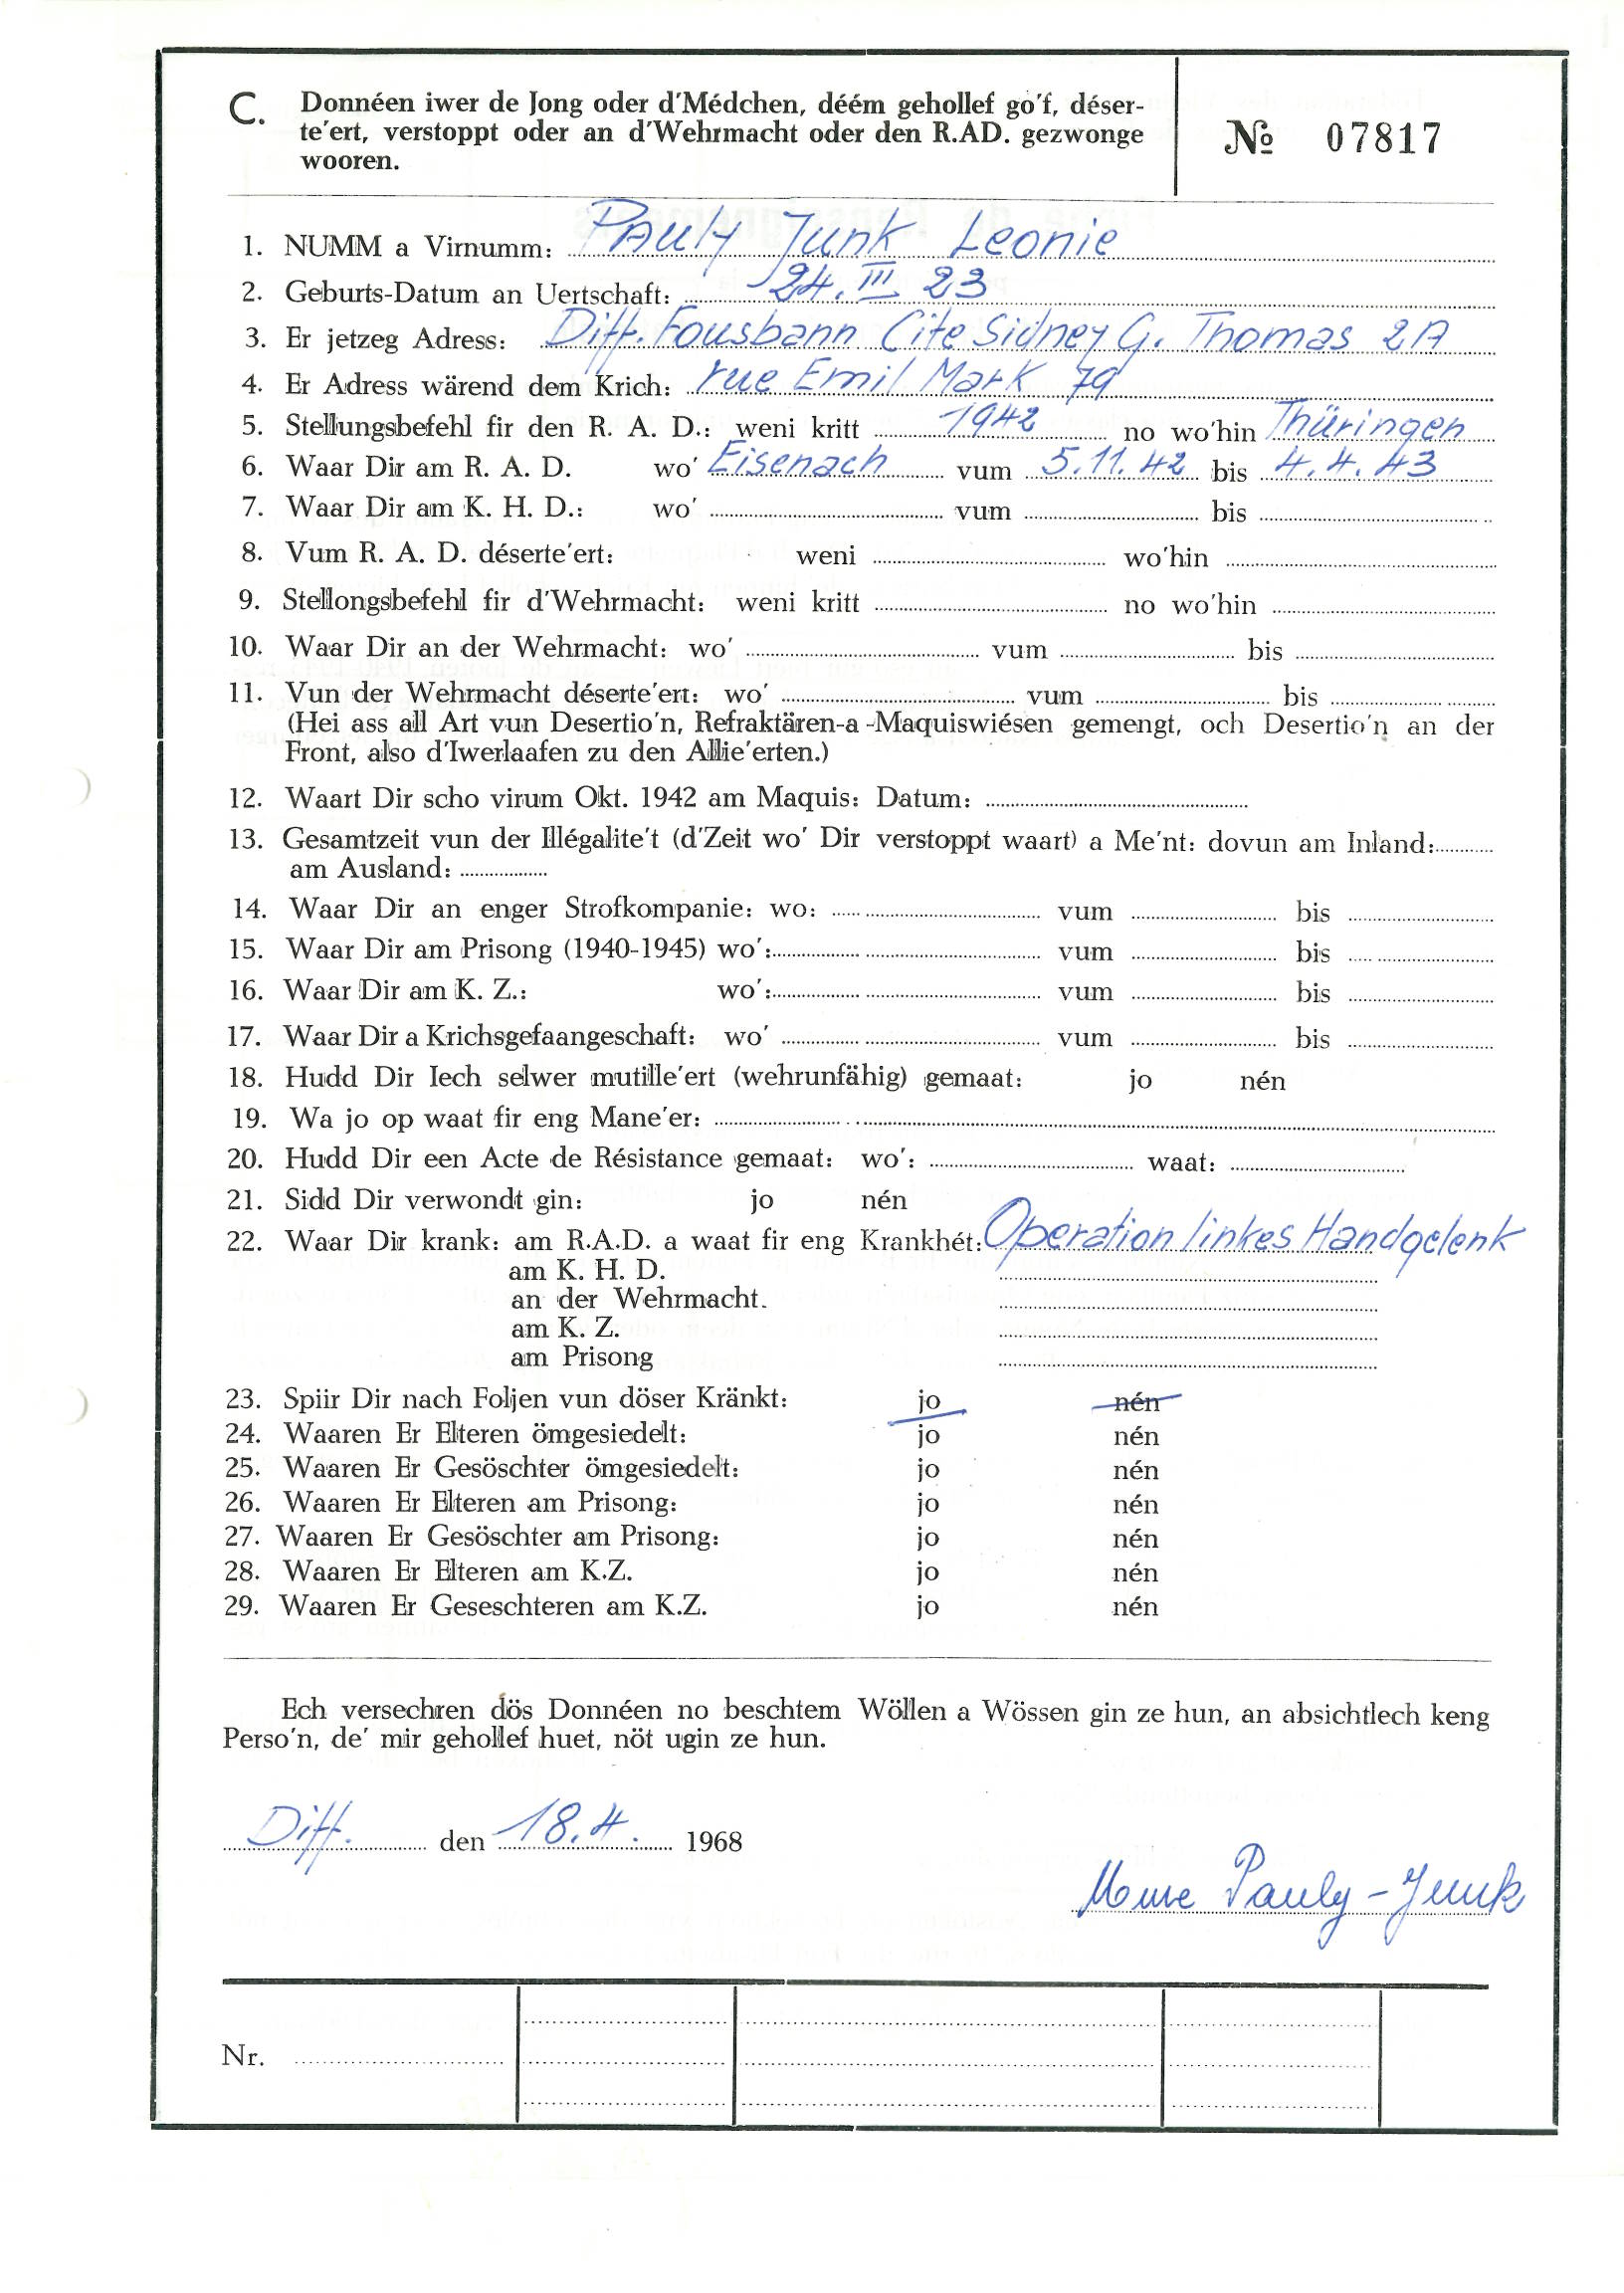 C. Donnéen iwer de Jong oder d'Médchen, déém gehollef go'f, déser-
te'ert, verstoppt oder an d'Wehrmacht oder den R.AD. gezwonge
wooren.
№ 07817
1. NUMM a Virnumm: Pauly Junk Leonie
2. Geburts-Datum an Uertschaft: 24. III 23
3. Er jetzeg Adress: Diff. Fousbann Cite Sidney G. Thomas 2A
4. Er Adress wärend dem Krich: rue Emil Mark 79
5. Stellungsbefehl fir den R. A. D.: weni kritt 1942 no wo'hin Thüringen
6. Waar Dir am R. A. D. wo' Eisenach vum 5.11.42 bis 4.4.43
7. Waar Dir am K. H. D.: wo' vum bis
8. Vum R. A. D. déserte'ert: weni wo'hin
9. Stellongsbefehl fir d'Wehrmacht: weni kritt no wo'hin
10. Waar Dir an der Wehrmacht: wo' vum bis
11. Vun der Wehrmacht déserte'ert: wo' vum bis
(Hei ass all Art vun Desertio'n, Refraktären-a-Maquiswiésen gemengt, och Desertio'n an der
Front, also d'Iwerlaafen zu den Allie'erten.)
12. Waart Dir scho virum Okt. 1942 am Maquis: Datum:
13. Gesamtzeit vun der Illégalite't (d'Zeit wo' Dir verstoppt waart) a Me'nt: dovun am Inland:
am Ausland:
14. Waar Dir an enger Strofkompanie: wo: vum bis
15. Waar Dir am Prisong (1940-1945) wo': vum bis
16. Waar Dir am K. Z.: wo': vum bis
17. Waar Dir a Krichsgefaangeschaft: wo' vum bis
18. Hudd Dir Iech selwer mutille'ert (wehrunfähig) gemaat: jo nén
19. Wa jo op waat fir eng Mane'er:
20. Hudd Dir een Acte de Résistance gemaat: wo': waat:
21. Sidd Dir verwondt gin: jo nén
22. Waar Dir krank: am R.A.D. a waat fir eng Krankhét: Operation linkes Handgelenk
am K. H. D.
an der Wehrmacht.
am K. Z.
am Prisong
23. Spiir Dir nach Foljen vun döser Kränkt: jo nén
24. Waaren Er Elteren ömgesiedelt: jo nén
25. Waaren Er Gesöschter ömgesiedelt: jo nén
26. Waaren Er Elteren am Prisong: jo nén
27. Waaren Er Gesöschter am Prisong: jo nén
28. Waaren Er Elteren am K.Z. jo nén
29. Waaren Er Geseschteren am K.Z. jo nén
Ech versechren dös Donnéen no beschtem Wöllen a Wössen gin ze hun, an absichtlech keng
Perso'n, de' mir gehollef huet, nöt ugin ze hun.
Diff. den 18.4. 1968
Pauly-Junk
Nr.